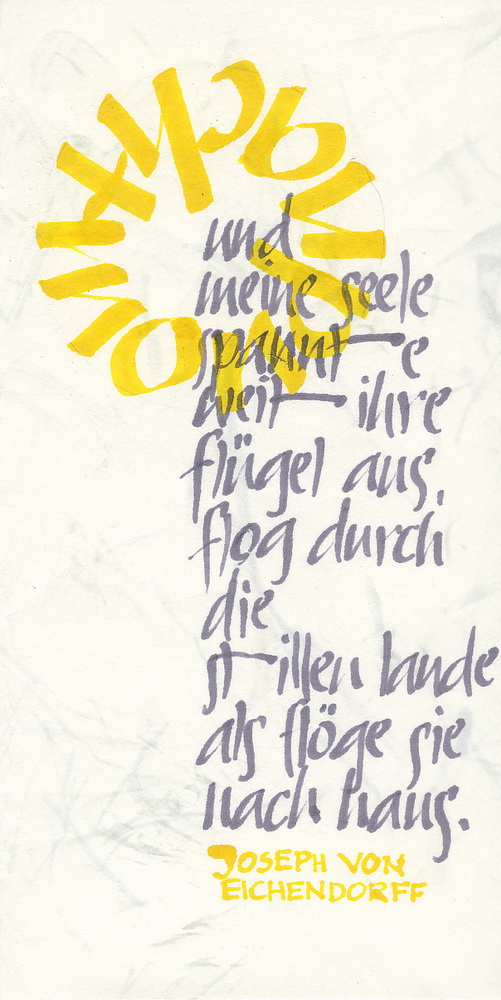 mondnacht
und
meine seele
spannte
weit ihre
flügel aus,
flog durch
die
stillen lande
als flöge sie
nach haus.
JOSEPH VON
EICHENDORFF